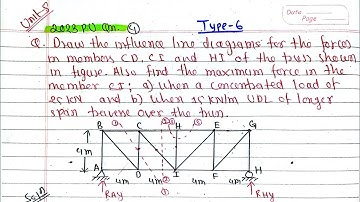 Unit-5
2023 PU Qn. 4
Type-6
Date
Page
Q. Draw the influence line diagrams for the forces
in members CD, CI and HI of the truss shown
in figure. Also find the maximum force in the
member CI; a) when a concentrated load of
25 kN and b) when 15 kN/m UDL of longer
span travere over the truss.
B C H E G
4m
A D I F H
4m 4m 4m 4m
RAy RHy
Soln